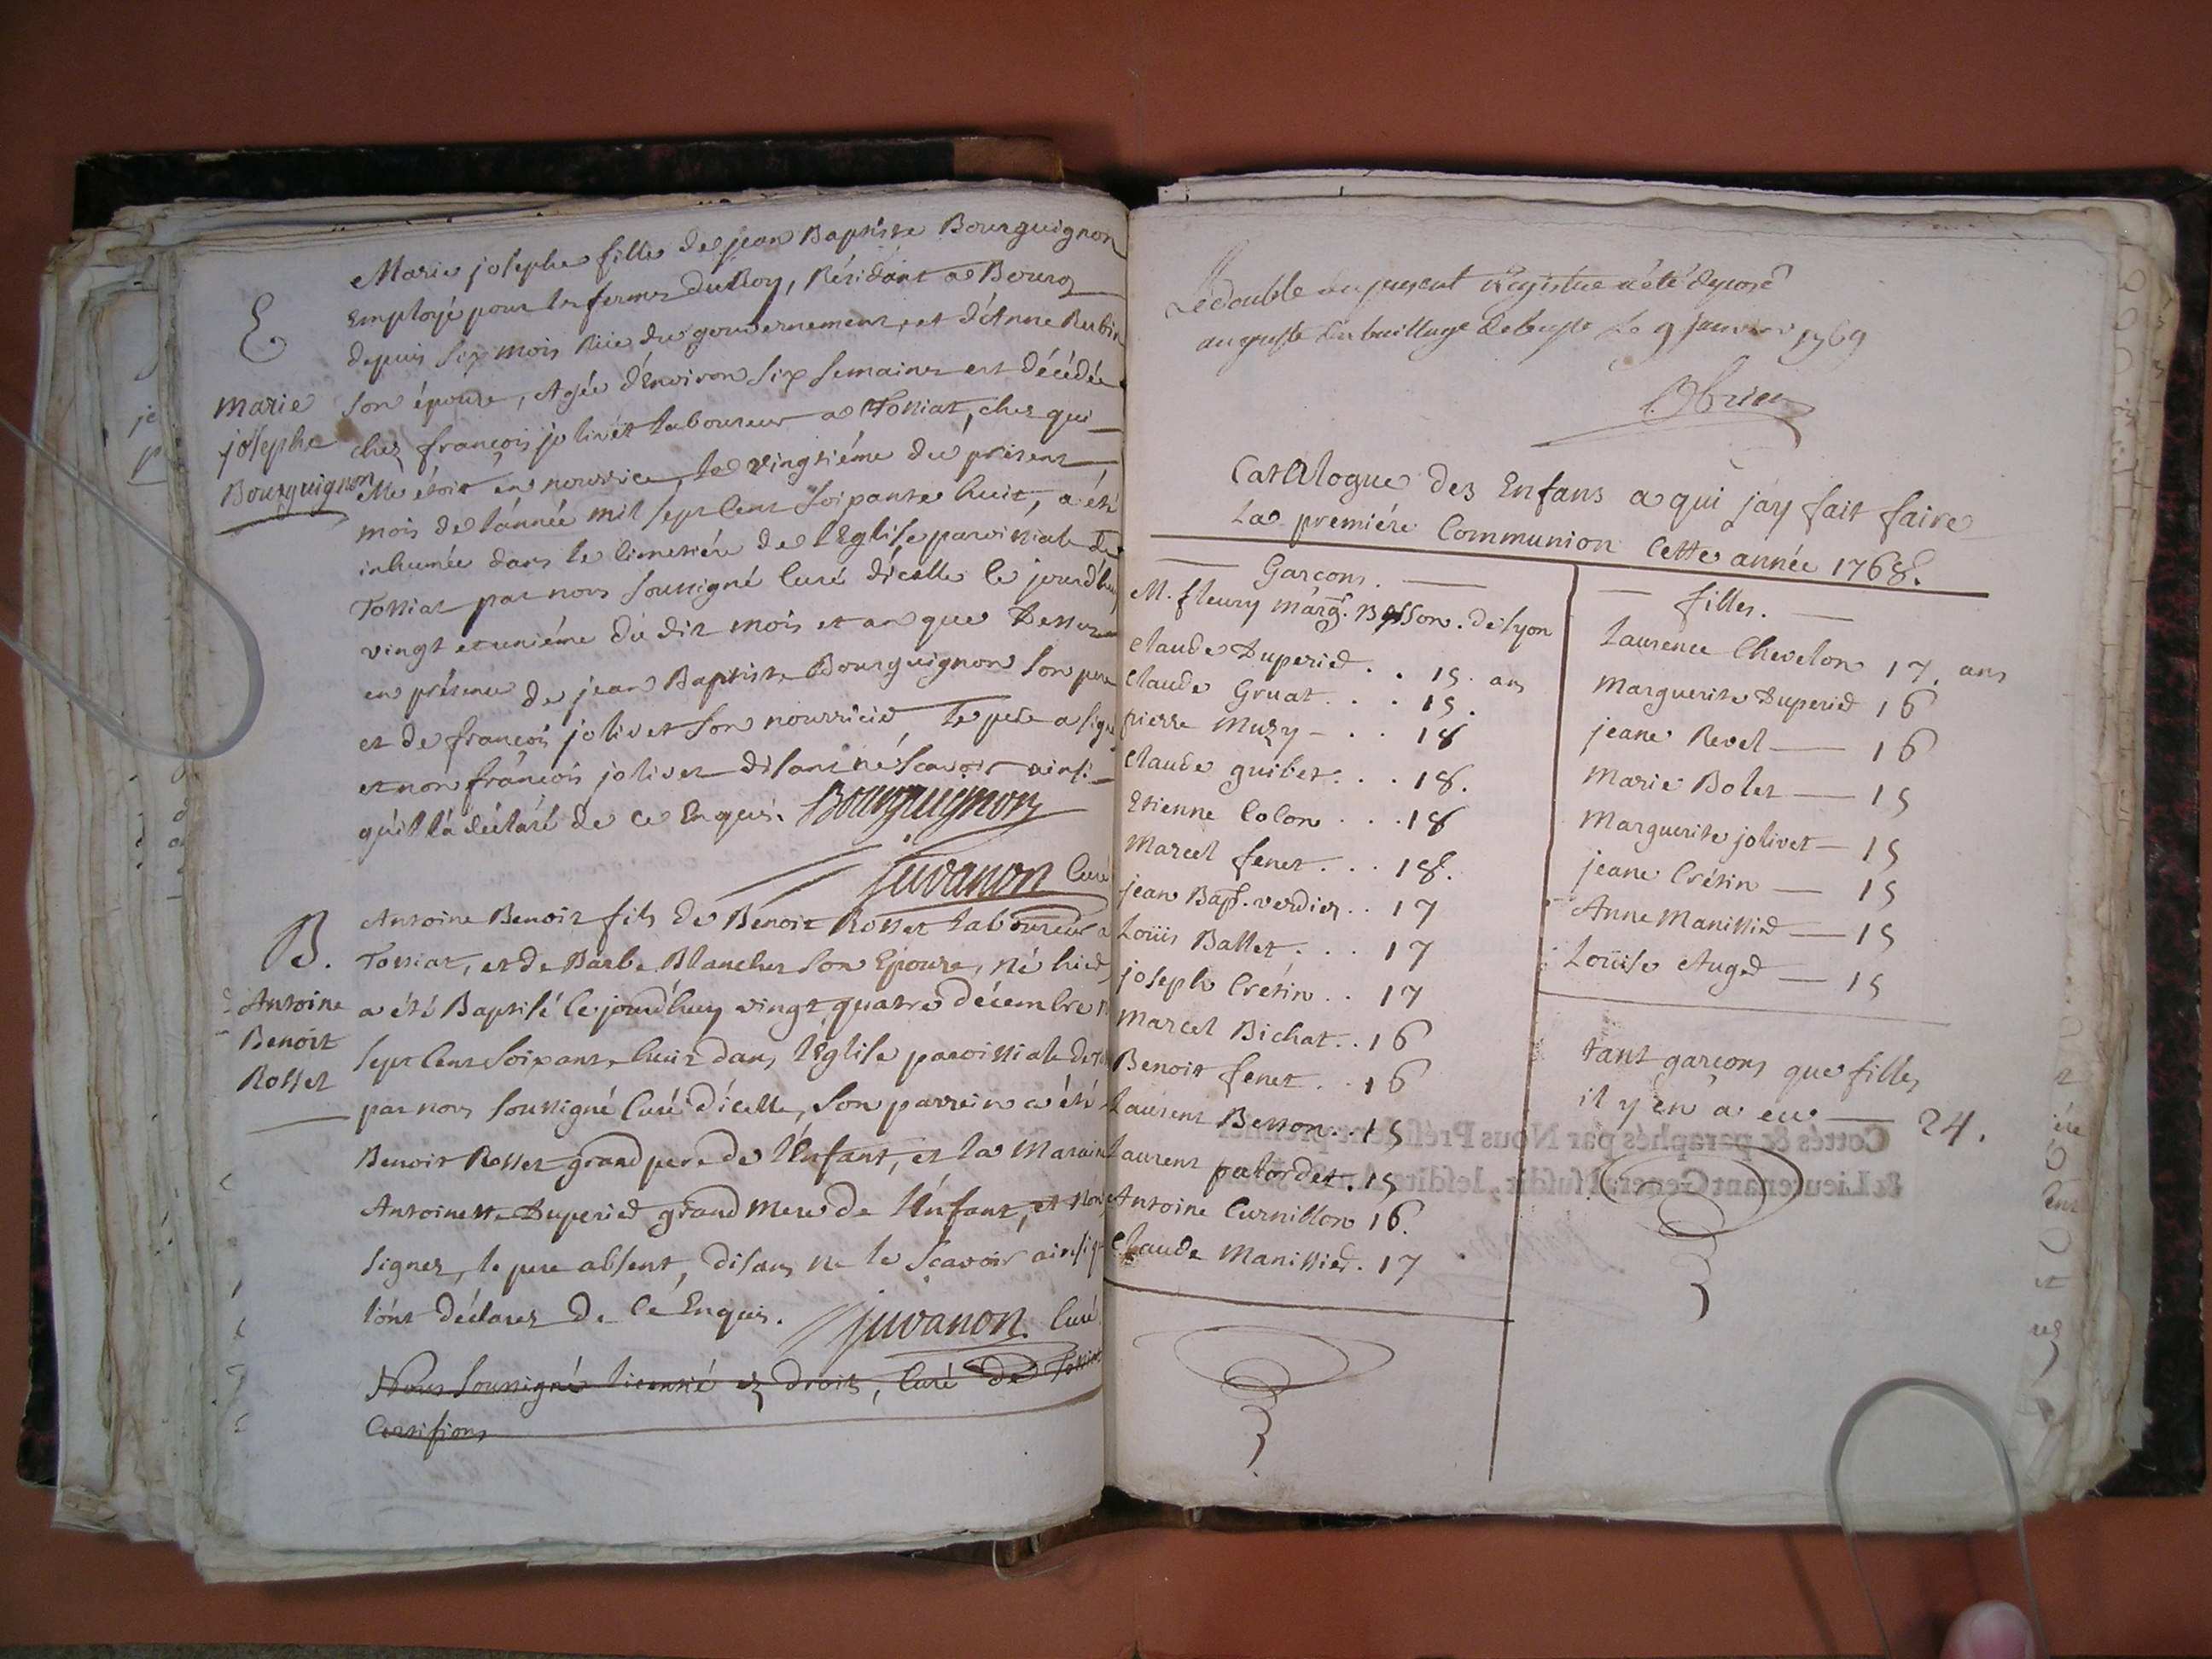 E
marie
josephe
Bourguignon
Marie josephe fille de jean Baptiste Bourguignon
Employé pour les fermes du Roy, Résidant a Bourg
depuis six mois Rüe du gouvernement, et d'Anne Rubin
son épouse, Agée d'Environ six semaines est décédée
chez françois jolivet Laboureur a Tossiat, chez qui
elle étoit en nourrice, le vingtiéme du présent
mois de l'année mil sept cent soixante huit, a été
inhumée dans le cimetiére de l'Eglise paroissiale de
Tossiat par nous soussigné Curé d'icelle ce jourd'huy
vingt et uniéme du dit mois et an que Dessus
en présence de jean Baptiste Bourguignon son pere
et de françois jolivet son nourricié Le pere a signé
et non françois jolivet disant ne Scavoir ainsi
qu'il l'a déclaré de ce Enquis. Bourguignon
juvanon Curé
B.
Antoine
Benoit
Rosset
Antoine Benoit fils de Benoit Rosset Laboureur a
Tossiat, et de Barbe Blanchet son Epouse, né hied
a été Baptisé ce jourd'huy vingt quatre décembre
sept cent soixante huit dans l'Eglise paroissiale de
par nous soussigné Curé d'icelle, son parrein a été
Benoit Rosset grand pere de l'Enfant, et la Maraine
Antoinette Duperied grand mere de l'Enfant, et non
signez, le pere absent, disans ne le Scavoir ainsi q
l'ont déclarez de ce Enquis. juvanon Curé
Nous soussigné licentié ez droits, Curé de Tossiat
Certifions
Le double du present Registre a été deposé
au greffe du bailliage de bresse le 9 janvier 1769
Catalogue des Enfans a qui j'ay fait faire
La premiére Communion Cette année 1768.
Garcons.
M. fleury marg. Besson. de Lyon
Claude Duperied . . 15. ans
Claude Gruat . . . 15.
pierre Muzy - . . 18
Claude guibet . . . 18.
Etienne Colon . . . 18
Marcel fenet . . . 18.
jean Bapt. verdier . . 17
Loüis Ballet . . . 17
joseph Crétin . . 17
Marcel Bichat . . 16
Benoit fenet . . 16
Laurent Besson . . 15
Laurent palordet . 15
Antoine Curnillon 16.
Claude Manissied . 17
filles.
Laurence Chevelon 17. ans
Marguerite Duperied 16
jeane Revel — 16
Marie Bolet — 15
Marguerite jolivet — 15
jeane Crétin — 15
Anne Manissied — 15
Loüise Auged — 15
tant garçons que filles
il y en a eu — 24.
Cottés & paraphés par Nous Président
& Lieutenant General susdit, lesdits